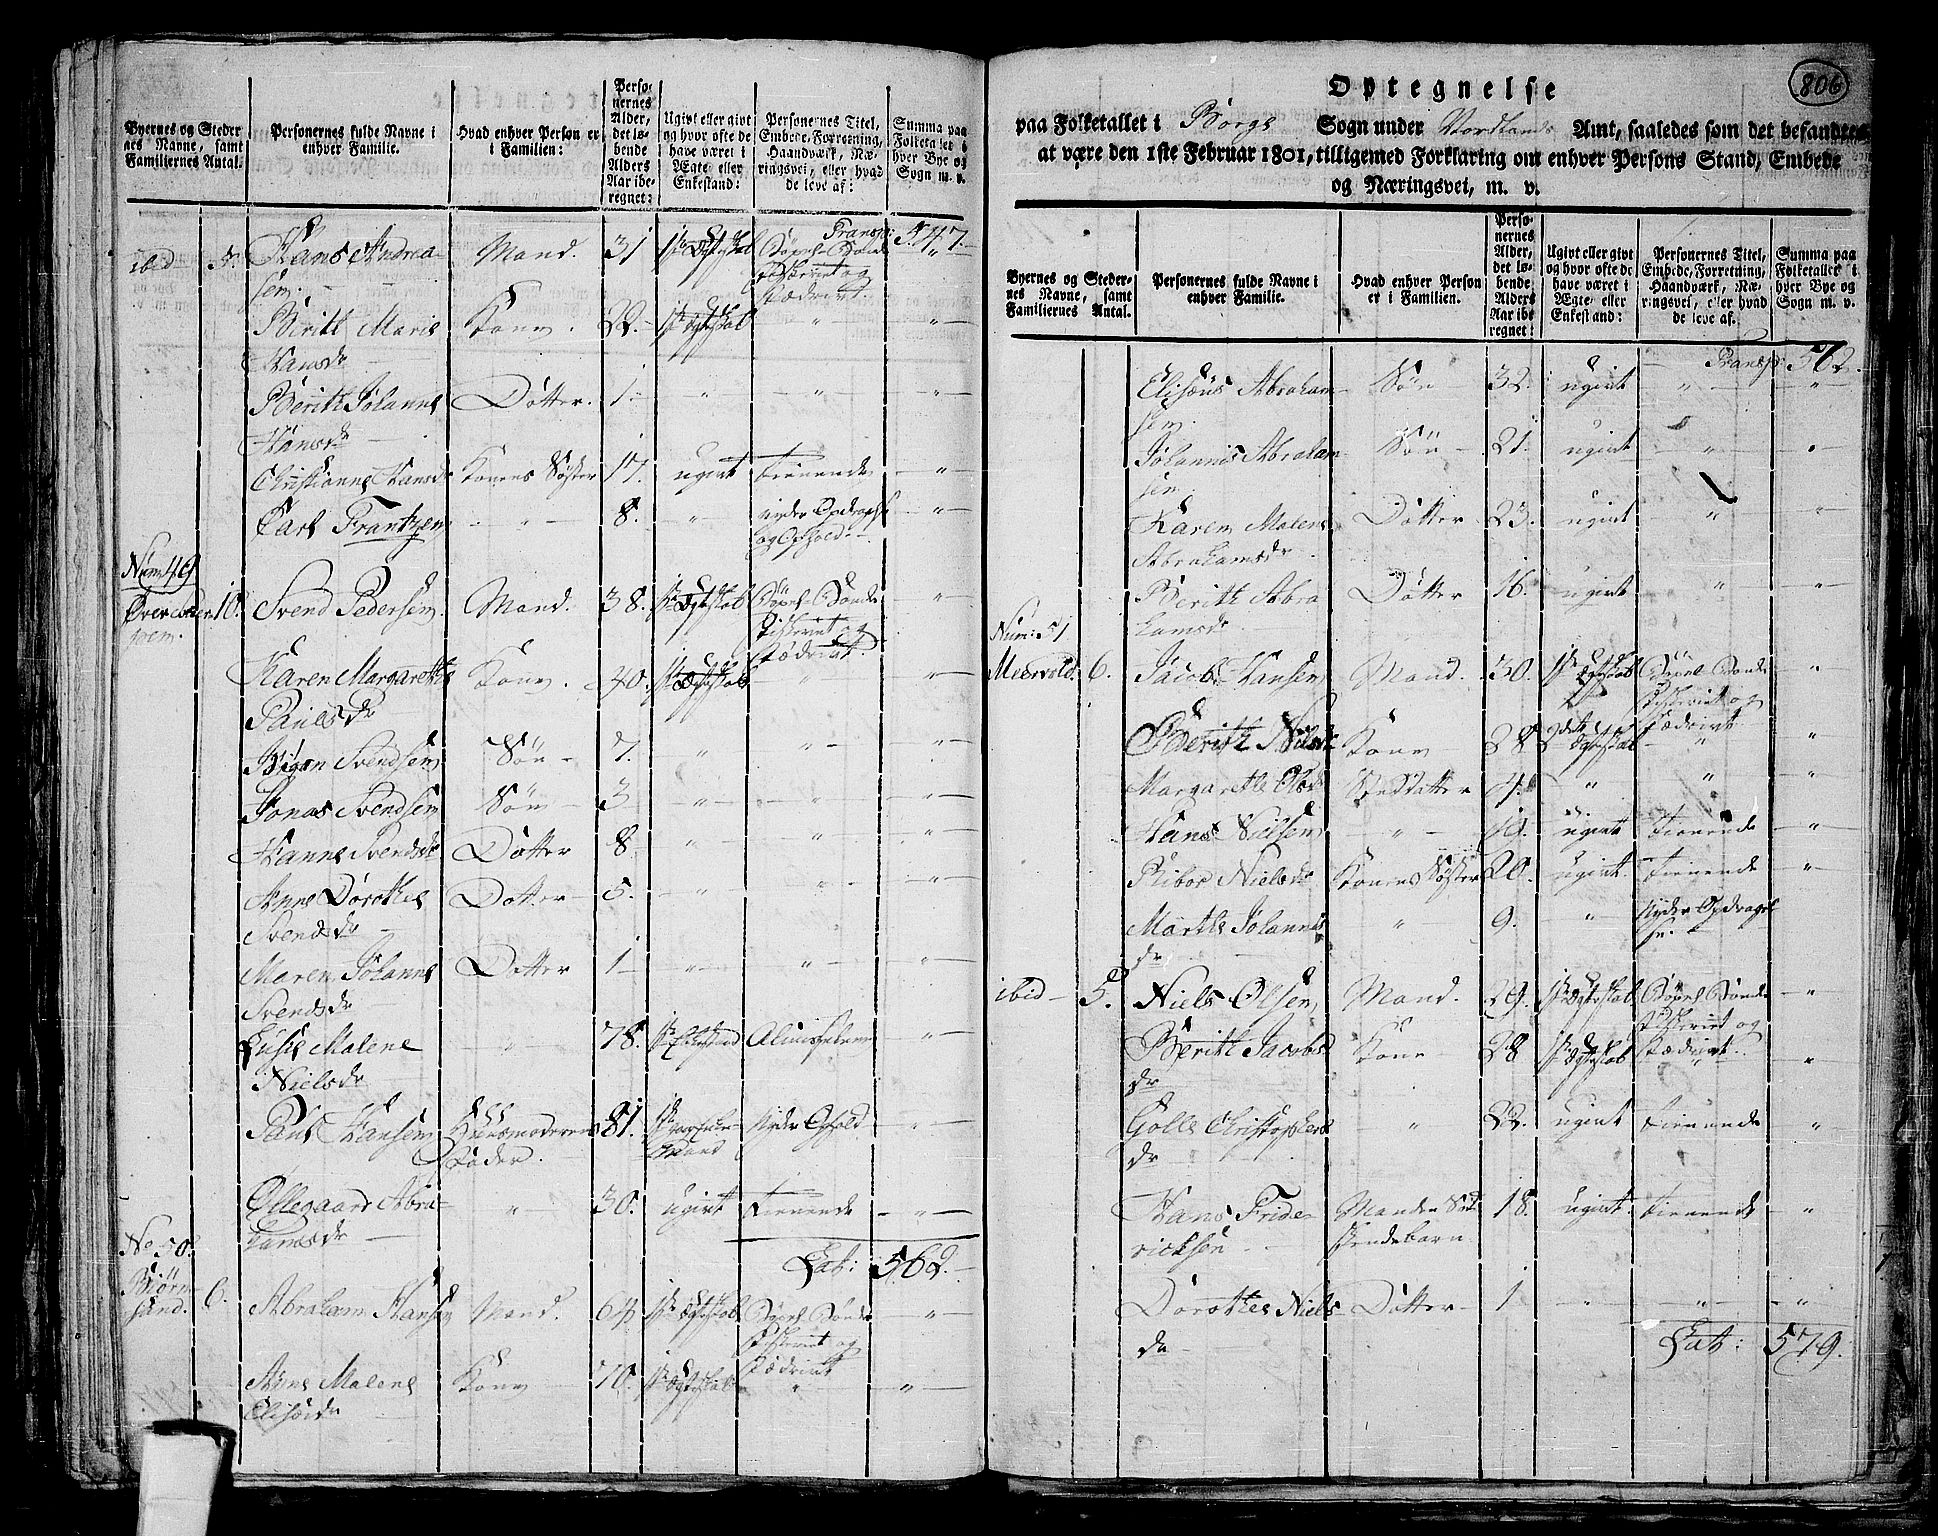 Byernes og Steder
nes Navne, samt
Familiernes Antal.
Personernes fulde Navne i
enhver Familie.
Hvad enhver Person er
i Familien:
Perso-
nernes
Alder,
det lø-
bende
Alders
Aar ibe-
regnet:
Ugivt eller givt
og hvor ofte de
have været i
Ægte- eller
Enkestand:
Personernes Titel,
Embede, Forretning,
Haandværk, Næ-
ringsvei, eller hvad
de leve af:
Summa paa
Folketallet i
hver Bye og
Sogn m. v.
Transp: 547.
ibid 5. Hans Andrea- Mand. 31 1ste Ægteskab Gaard Bonde
sen. Fiskeriet og
Jordrivt.
Birith Maria Kone. 22. 1ste Ægteskab " "
Hansdr
Berith Johanna Dotter. 1. " " "
Hansdr
Christianna Hansdr Konens Søster 17. ugivt tienende "
Carl Frantzen " 8. " nyder Opdragelse "
og Ophold.
Num 49
10. Svend Pedersen Mand. 38. 1ste Ægteskab Bonde "
Fiskeriet og
Karen Margarethe Kone. 40. 1ste Ægteskab " "
Paulsdr
Svendsen Søn 7. " " "
Jonas Svendsen Søn 3 " " "
Hanna Svendsdr Dotter 8. " " "
Anne Dorothea Dotter 5. " " "
Svendsdr
Maren Johanna Dotter 1 " " "
Svendsdr
Lusie Malene " 78. 1ste Enkestand Almisselem "
Nielsdr
Paul Hansen Huusmoderens 81. Enke- Nyder Ophold "
Fader. Mand
Ollegaard Abra- " 30. ugivt tienende "
hamsdr
Lat: 562.
No 50.
Biørn
sund. 6. Abraham Hansen Mand. 64 1ste Ægteskab Bonde "
Fiskeriet og
Anne Malene Kone 70. 1ste Ægteskab " "
Elisædr
806
Optegnelse
paa Folketallet i Borge Sogn under Nordlands Amt, saaledes som det befandtes
at være den 1ste Februar 1801, tilligemed Forklaring om enhver Persons Stand, Embede
og Næringsvei, m. v.
Byernes og Steder-
nes Navne, samt
Familiernes Antal.
Personernes fulde Navne i
enhver Familie.
Hvad enhver Person
er i Familien.
Perso-
nernes
Alder,
det lø-
bende
Alders
Aar ibe-
regnet:
Ugivt eller givt
og hvor ofte de
have været i
Ægte- eller
Enkestand:
Personernes Titel,
Embede, Forretning,
Haandværk, Næ-
ringsvei, eller hvad
de leve af.
Summa paa
Folketallet i
hver Bye og
Sogn m. v.
Transp: 562.
Elisæus Abraham Søn 32. ugivt " "
sen.
Johannis Abraham Søn 21. ugivt " "
sen
Karen Malena Dotter 23. ugivt " "
Abrahamsdr
Berith Abra Dotter 16. ugivt " "
hamsdr
Num: 51
6. Jacob Hansen Mand. 30. 1ste Ægteskab Bonde "
Fiskeriet og
Berith Nielsdr Kone 38 2det Ægteskab " "
Margarethe Olsdr Steddatter 4. " " "
Hans Nielsen " 19. ugivt tienende "
Ribor Nielsdr Konens Søster 20. ugivt tienende "
Marthe Johannes " 9. " Nyder Opdragel "
dr se.
ibid 5. Niels Olsen Mand. 29. 1ste Ægteskab Bonde "
Fiskeriet og
Berith Jacobs Kone 28 1ste Ægteskab "
dr
Golle Christophers " 22. ugivt tienende "
dr
Hans Fride- Mandens Sød 18. ugivt tienende "
ricksen skendebarn
Dorothea Niels Dotter 1 " " "
dr
Lat: 579.